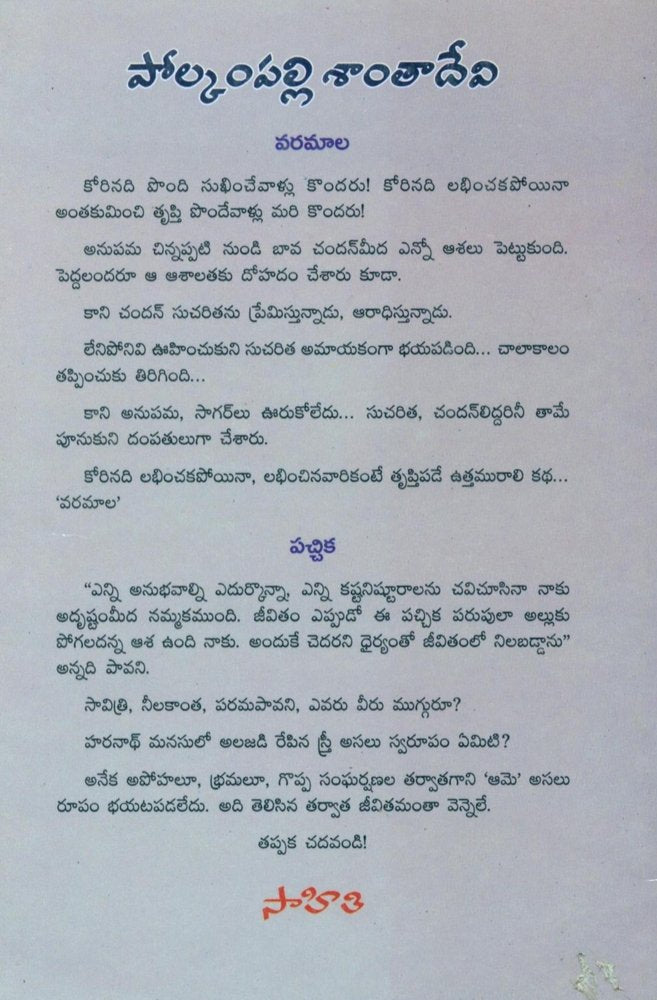 పోల్కంపల్లి శాంతాదేవి
వరమాల
కోరినది పొంది సుఖించేవాళ్లు కొందరు! కోరినది లభించకపోయినా
అంతకుమించి తృప్తి పొందేవాళ్లు మరి కొందరు!
అనుపమ చిన్నప్పటి నుండి బావ చందన్‌మీద ఎన్నో ఆశలు పెట్టుకుంది.
పెద్దలందరూ ఆ ఆశాలతకు దోహదం చేశారు కూడా.
కాని చందన్ సుచరితను ప్రేమిస్తున్నాడు, ఆరాధిస్తున్నాడు.
లేనిపోనివి ఊహించుకుని సుచరిత అమాయకంగా భయపడింది... చాలాకాలం
తప్పించుకు తిరిగింది...
కాని అనుపమ, సాగర్‌లు ఊరుకోలేదు... సుచరిత, చందన్‌లిద్దరినీ తామే
పూనుకుని దంపతులుగా చేశారు.
కోరినది లభించకపోయినా, లభించినవారికంటే తృప్తిపడే ఉత్తమురాలి కథ...
‘వరమాల’
పచ్చిక
“ఎన్ని అనుభవాల్ని ఎదుర్కొన్నా, ఎన్ని కష్టనిష్టూరాలను చవిచూసినా నాకు
అదృష్టంమీద నమ్మకముంది. జీవితం ఎప్పుడో ఈ పచ్చిక పరుపులా అల్లుకు
పోగలదన్న ఆశ ఉంది నాకు. అందుకే చెదరని ధైర్యంతో జీవితంలో నిలబడ్డాను”
అన్నది పావని.
సావిత్రి, నీలకాంత, పరమపావని, ఎవరు వీరు ముగ్గురూ?
హరనాథ్ మనసులో అలజడి రేపిన స్త్రీ అసలు స్వరూపం ఏమిటి?
అనేక అపోహలూ, భ్రమలూ, గొప్ప సంఘర్షణల తర్వాతగాని ‘ఆమె’ అసలు
రూపం భయటపడలేదు. అది తెలిసిన తర్వాత జీవితమంతా వెన్నెలే.
తప్పక చదవండి!
సాహితి